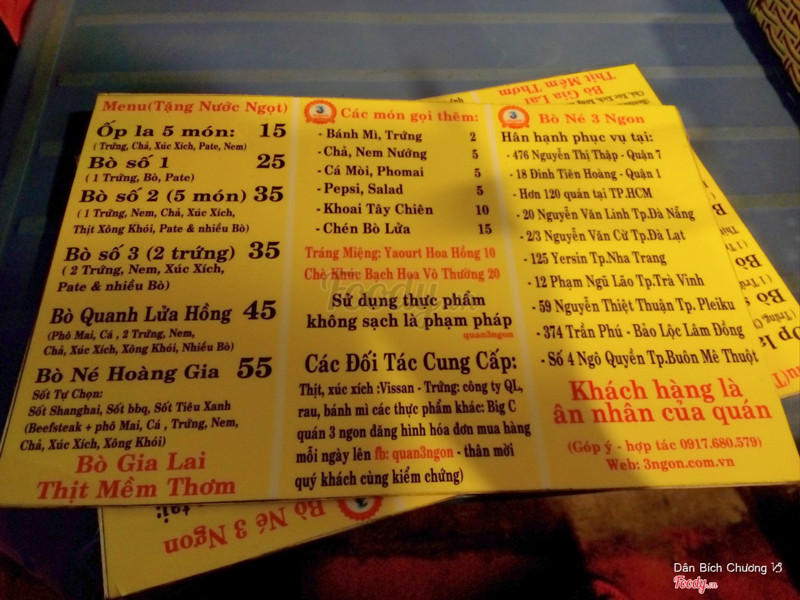 Menu(Tặng Nước Ngọt)
Ốp la 5 món: 15
( Trứng, Chả, Xúc Xích, Pate, Nem)
Bò số 1 25
(1 Trứng, Bò, Pate)
Bò số 2 (5 món) 35
( 1 Trứng, Nem, Chả, Xúc Xích,
Thịt Xông Khói, Pate & nhiều Bò)
Bò số 3 (2 trứng) 35
( 2 Trứng, Nem, Xúc Xích,
Pate & nhiều Bò)
Bò Quanh Lửa Hồng 45
(Phô Mai, Cá , 2 Trứng, Nem,
Chả, Xúc Xích, Xông Khói, Nhiều Bò)
Bò Né Hoàng Gia 55
Sốt Tự Chọn:
Sốt Shanghai, Sốt bbq, Sốt Tiêu Xanh
(Beefsteak + phô Mai, Cá , Trứng, Nem,
Chả, Xúc Xích, Xông Khói)
Bò Gia Lai
Thịt Mềm Thơm
3
Các món gọi thêm:
- Bánh Mì, Trứng 2
- Chả, Nem Nướng 5
- Cá Mòi, Phomai 5
- Pepsi, Salad 5
- Khoai Tây Chiên 10
- Chén Bò Lửa 15
Tráng Miệng: Yaourt Hoa Hồng 10
Chè Khúc Bạch Hoa Vô Thường 20
Sử dụng thực phẩm
không sạch là phạm pháp
quan3ngon
Các Đối Tác Cung Cấp:
Thịt, xúc xích :Vissan - Trứng: công ty QL,
rau, bánh mì các thực phẩm khác: Big C
quán 3 ngon đăng hình hóa đơn mua hàng
mỗi ngày lên fb: quan3ngon - thân mời
quý khách cùng kiểm chứng)
3
Bò Né 3 Ngon
Hân hạnh phục vụ tại:
- 476 Nguyễn Thị Thập - Quận 7
- 18 Đinh Tiên Hoàng - Quận 1
- Hơn 120 quán tại TP.HCM
- 20 Nguyễn Văn Linh Tp.Đà Nẵng
- 2/3 Nguyễn Văn Cừ Tp.Đà Lạt
- 125 Yersin Tp.Nha Trang
- 12 Phạm Ngũ Lão Tp.Trà Vinh
- 59 Nguyễn Thiệt Thuận Tp. Pleiku
- 374 Trần Phú - Bảo Lộc Lâm Đồng
- Số 4 Ngô Quyền Tp.Buôn Mê Thuột
Khách hàng là
ân nhân của quán
(Góp ý - hợp tác 0917.680.579)
Web: 3ngon.com.vn
Bò Gia Lai
Thịt Mềm Thơm
Bò Né 3 Ngon
tại:
Foody.vn
Dân Bích Chương
Foody.vn